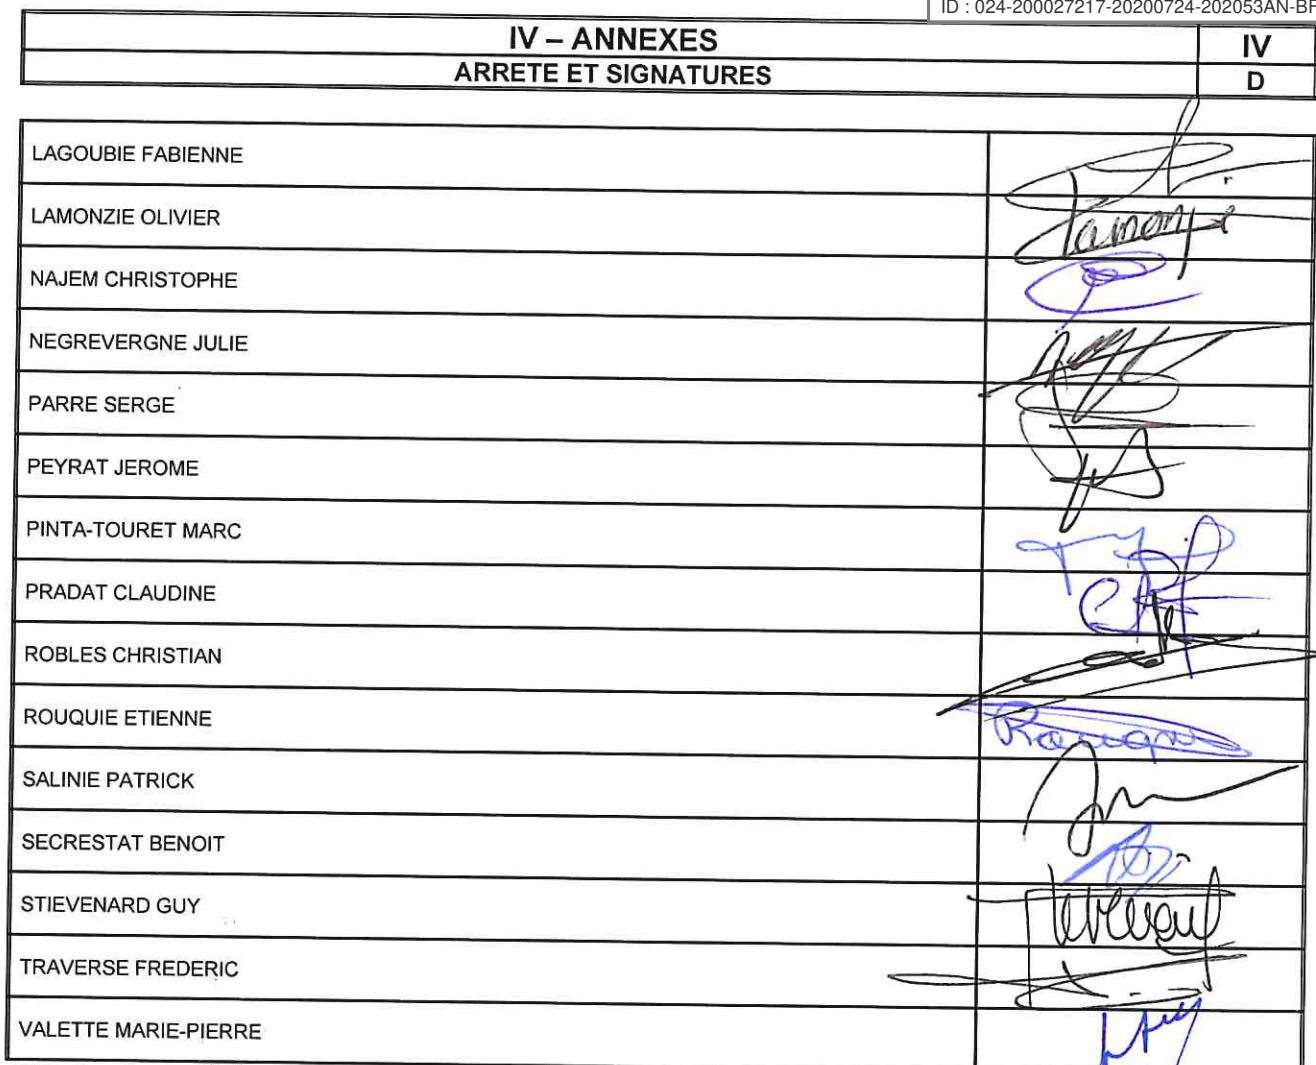 ID : 024-200027217-20200724-202053AN-BF
IV – ANNEXES
IV
ARRETE ET SIGNATURES
D
LAGOUBIE FABIENNE
LAMONZIE OLIVIER
Lamonzie
NAJEM CHRISTOPHE
NEGREVERGNE JULIE
PARRE SERGE
PEYRAT JEROME
PINTA-TOURET MARC
PRADAT CLAUDINE
ROBLES CHRISTIAN
ROUQUIE ETIENNE
SALINIE PATRICK
SECRESTAT BENOIT
STIEVENARD GUY
TRAVERSE FREDERIC
VALETTE MARIE-PIERRE